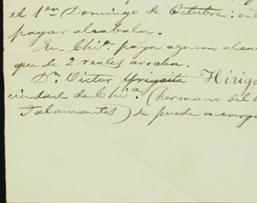 el 1er Domingo de Octubre: en
pagar alcabala.
En Chih.a paga azucar alca
que de 2 reales arroba.
Dn. Victor Yrigoiti Hirigo
ciudad de Ch.a (hermano del
Talamantes) se puede encarg